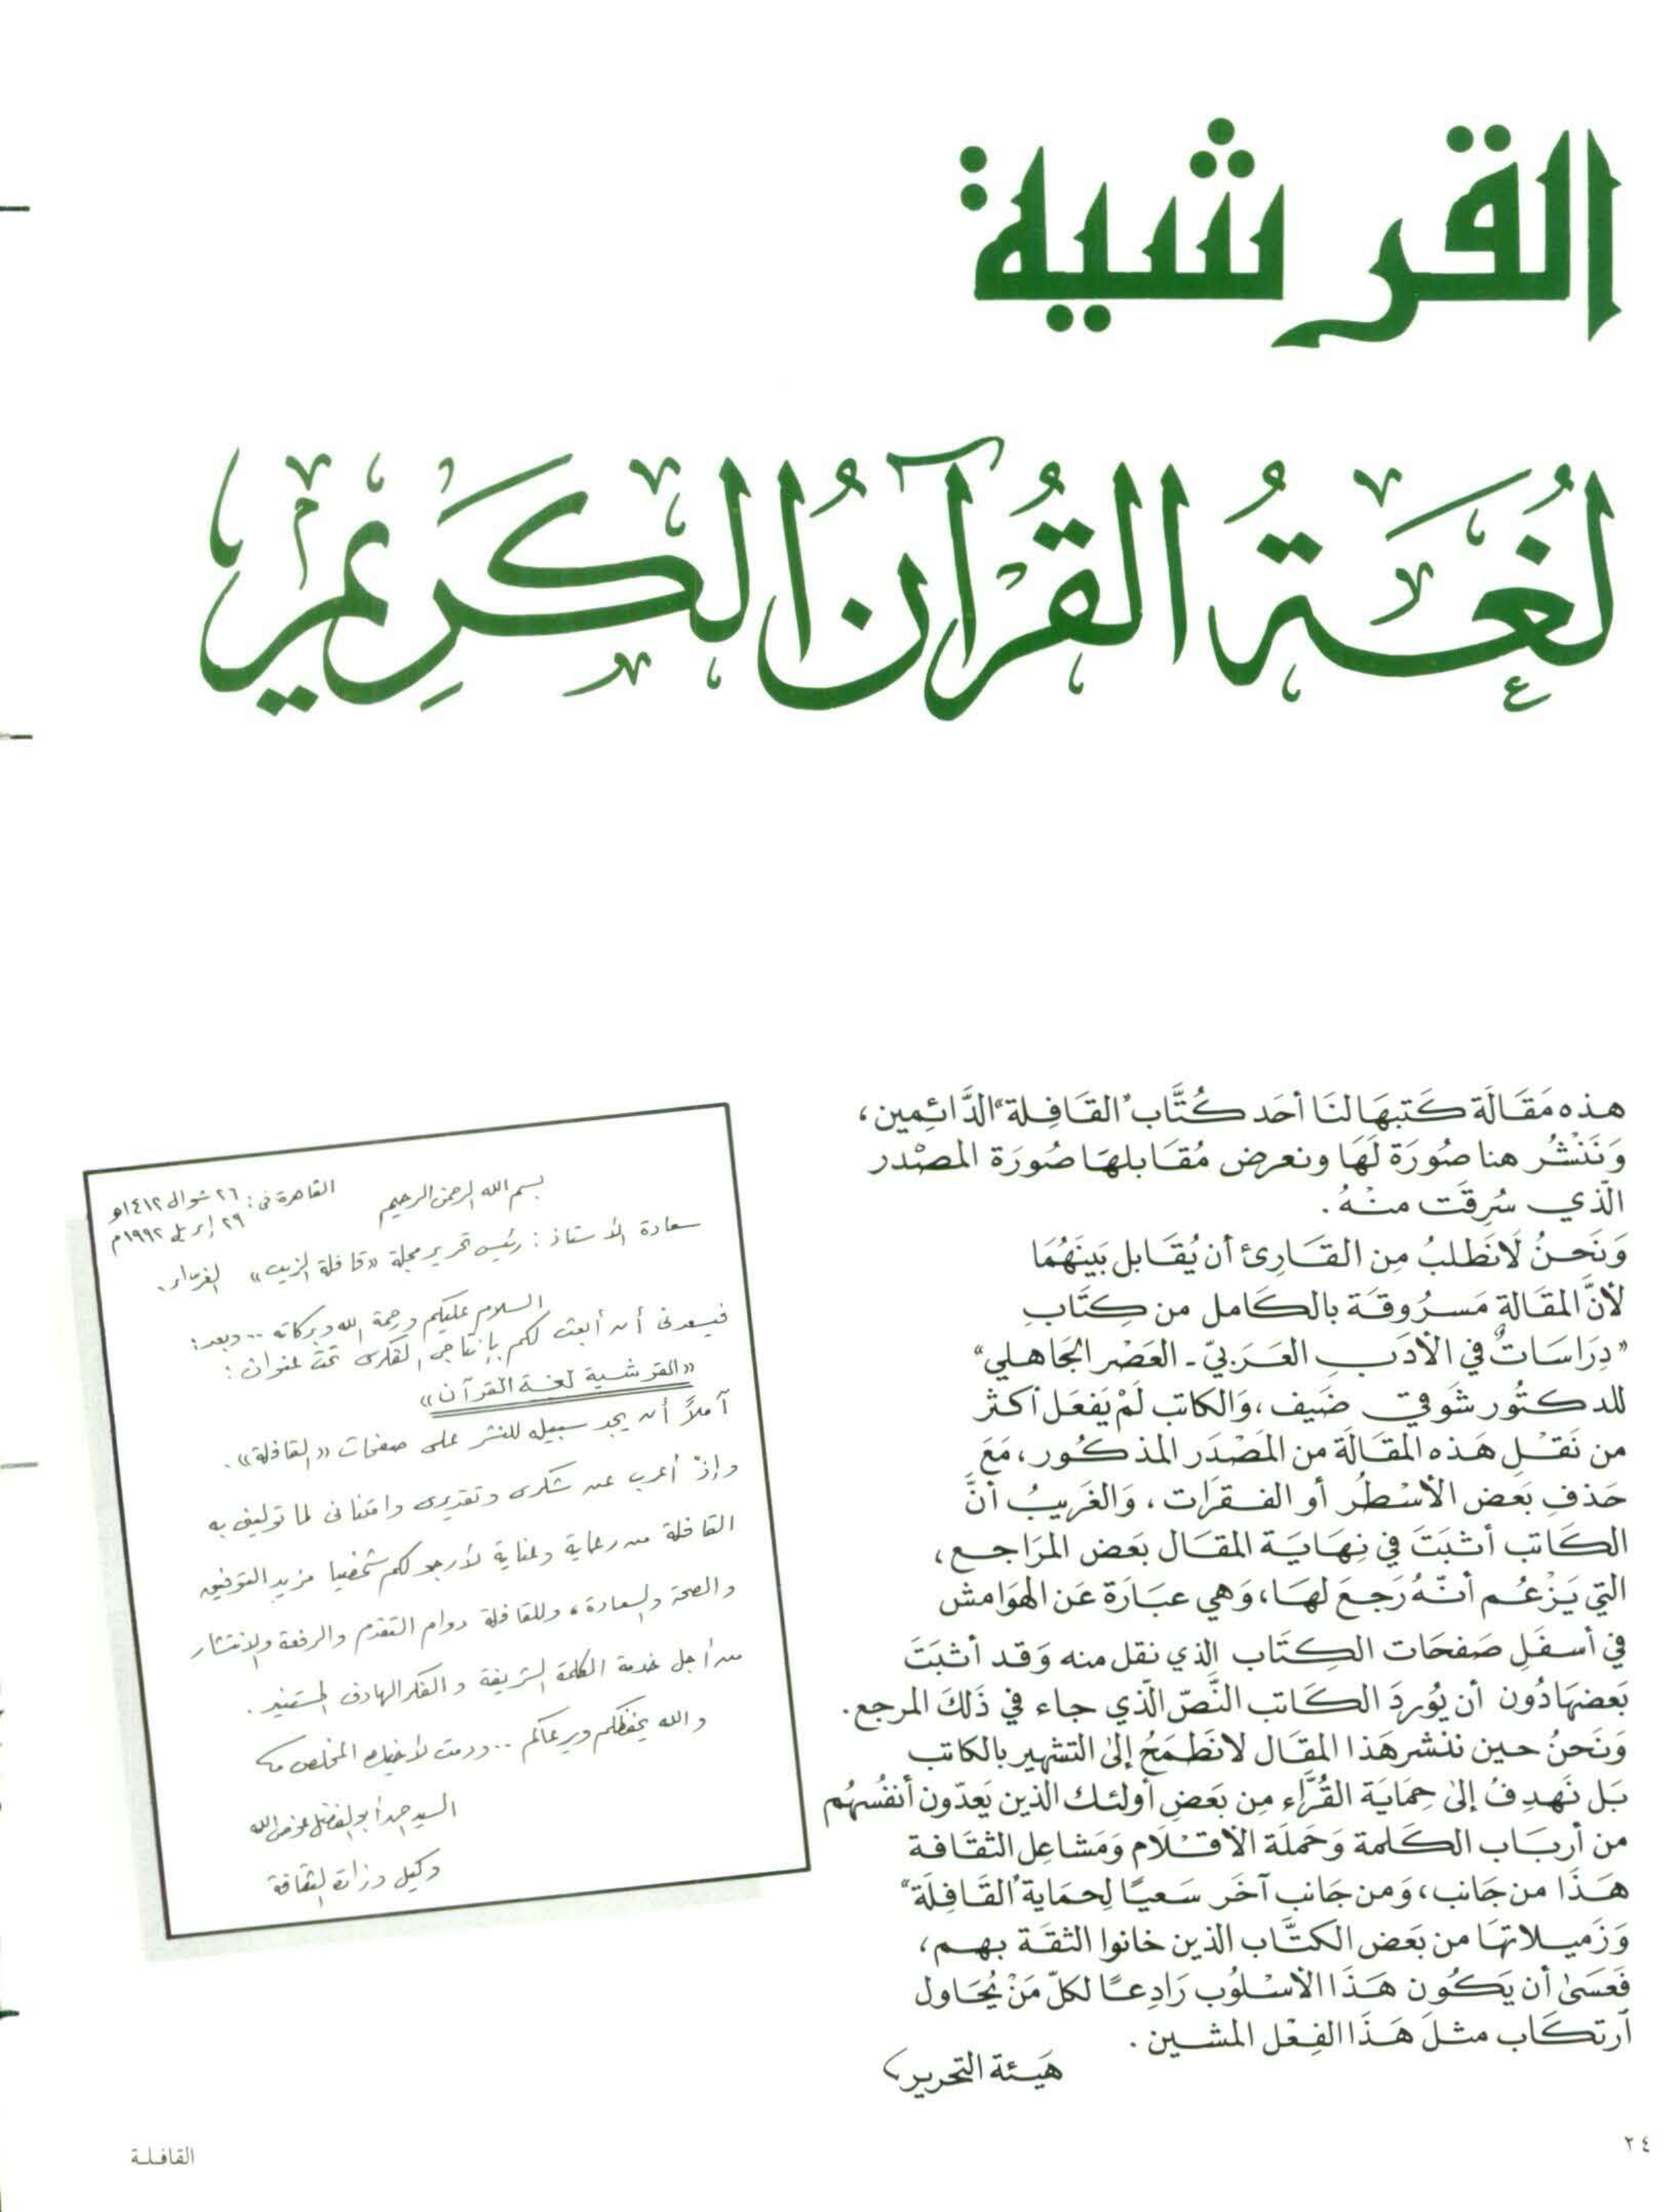 القرشية
لُغَةُ القُرآنُ الكَرِيم
هذه مَقَالَة كَتبهَا لنَا أحَد كُتَّاب "القَافِلة" الدَّائِمِين،
وَنَنْشُر هنا صُورَة لَهَا ونعرض مُقَابلهَا صُورَة المصْدر
الّذي سُرِقَت منْهُ.
وَنَحنُ لَانَطلبُ مِن القَارِئ أن يُقَابل بَينَهُمَا
لأنَّ المقَالة مَسرُوقَة بالكَامل من كِتَابِ
"دِرَاسَاتٌ في الأدَبِ العَرَبيّ - العَصْر الجَاهلي"
للدكتُور شَوقي ضَيف، وَالكاتب لَمْ يَفعَل أكثر
من نَقْلِ هَذه المقَالَة من المَصْدَر المذكُور، مَعَ
حَذفِ بَعض الأسْطُر أو الفقرَات، وَالغَريبُ أنَّ
الكَاتب أثبَتَ في نِهَايَة المقَال بَعض المرَاجع،
التي يَزْعُم أنّهُ رَجعَ لهَا، وَهي عبَارَة عَن الهَوَامش
في أسفَلِ صَفحَات الكِتَاب الذي نقل منه وَقد أثبَتَ
بَعضهَا دُون أن يُوردَ الكَاتب النَّصّ الّذي جاء في ذَلكَ المرجع.
وَنَحنُ حين ننشر هَذا المقَال لانَطمَحُ إلىٰ التشهير بالكاتب
بَل نَهدِفُ إلىٰ حِمَايَة القُرَّاء مِن بَعضِ أولئك الذين يَعدّون أنفسُهُم
من أربَاب الكَلمة وَحَملَة الأقْلَام وَمَشاعل الثقَافة
هَذَا من جَانب، وَمن جَانب آخَر سَعيًا لِحمَاية "القَافِلَة"
وَزَميلاتهَا من بَعض الكتَّاب الذين خانوا الثقَة بهم،
فَعَسَىٰ أن يَكُون هَذَا الأسْلُوب رَادِعًا لكلّ مَنْ يُحَاول
ارتكَاب مثلَ هَذَا الفِعْل المشين.
هَيئة التحرير
بسم الله الرحمن الرحيم
القاهرة فى: ٢٦ شوال ١٤١٢هـ
٢٩ إبريل ١٩٩٢م
سعادة الأستاذ: رئيس تحرير مجلة «قافلة الزيت» الغرّاء.
السلام عليكم ورحمة الله وبركاته .. وبعد:
فيسعدنى أن أبعث لكم بإنتاجى الفكرى تحت عنوان:
«القرشية لغة القرآن»
آملاً أن يجد سبيله للنشر على صفحات «القافلة».
وإذ أعرب عن شكرى وتقديرى وامتنانى لما توليني به
القافلة من رعاية وعناية لأرجو لكم شخصيا مزيد التوفيق
والصحة والسعادة، وللقافلة دوام التقدم والرفعة والانتشار
من أجل خدمة الكلمة الشريفة والفكر الهادف المستنير.
والله يحفظكم ويرعاكم .. ودمت لأخيك المخلص
السيد أحمد أبو الفضل عوض الله
وكيل وزارة الثقافة
٢٤
القافلة